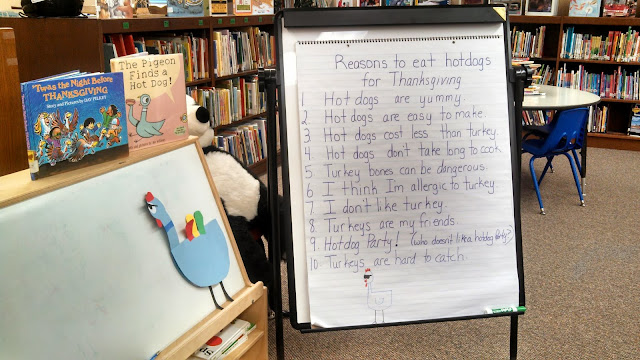 'Twas the Night Before
THANKSGIVING
Story and Pictures by DAV PILKEY
The Pigeon
Finds a
Hot Dog!
Reasons to eat hotdogs
for Thanksgiving
1 Hot dogs are yummy.
2 Hot dogs are easy to make.
3 Hot dogs cost less than turkey.
4. Hot dogs don't take long to cook
5 Turkey bones can be dangerous.
6 I think Im allergic to turkey.
7. I don't like turkey.
8. Turkeys are my friends.
9. Hotdog Party! (who doesn't like a hotdog party?)
10- Turkeys are hard to catch.